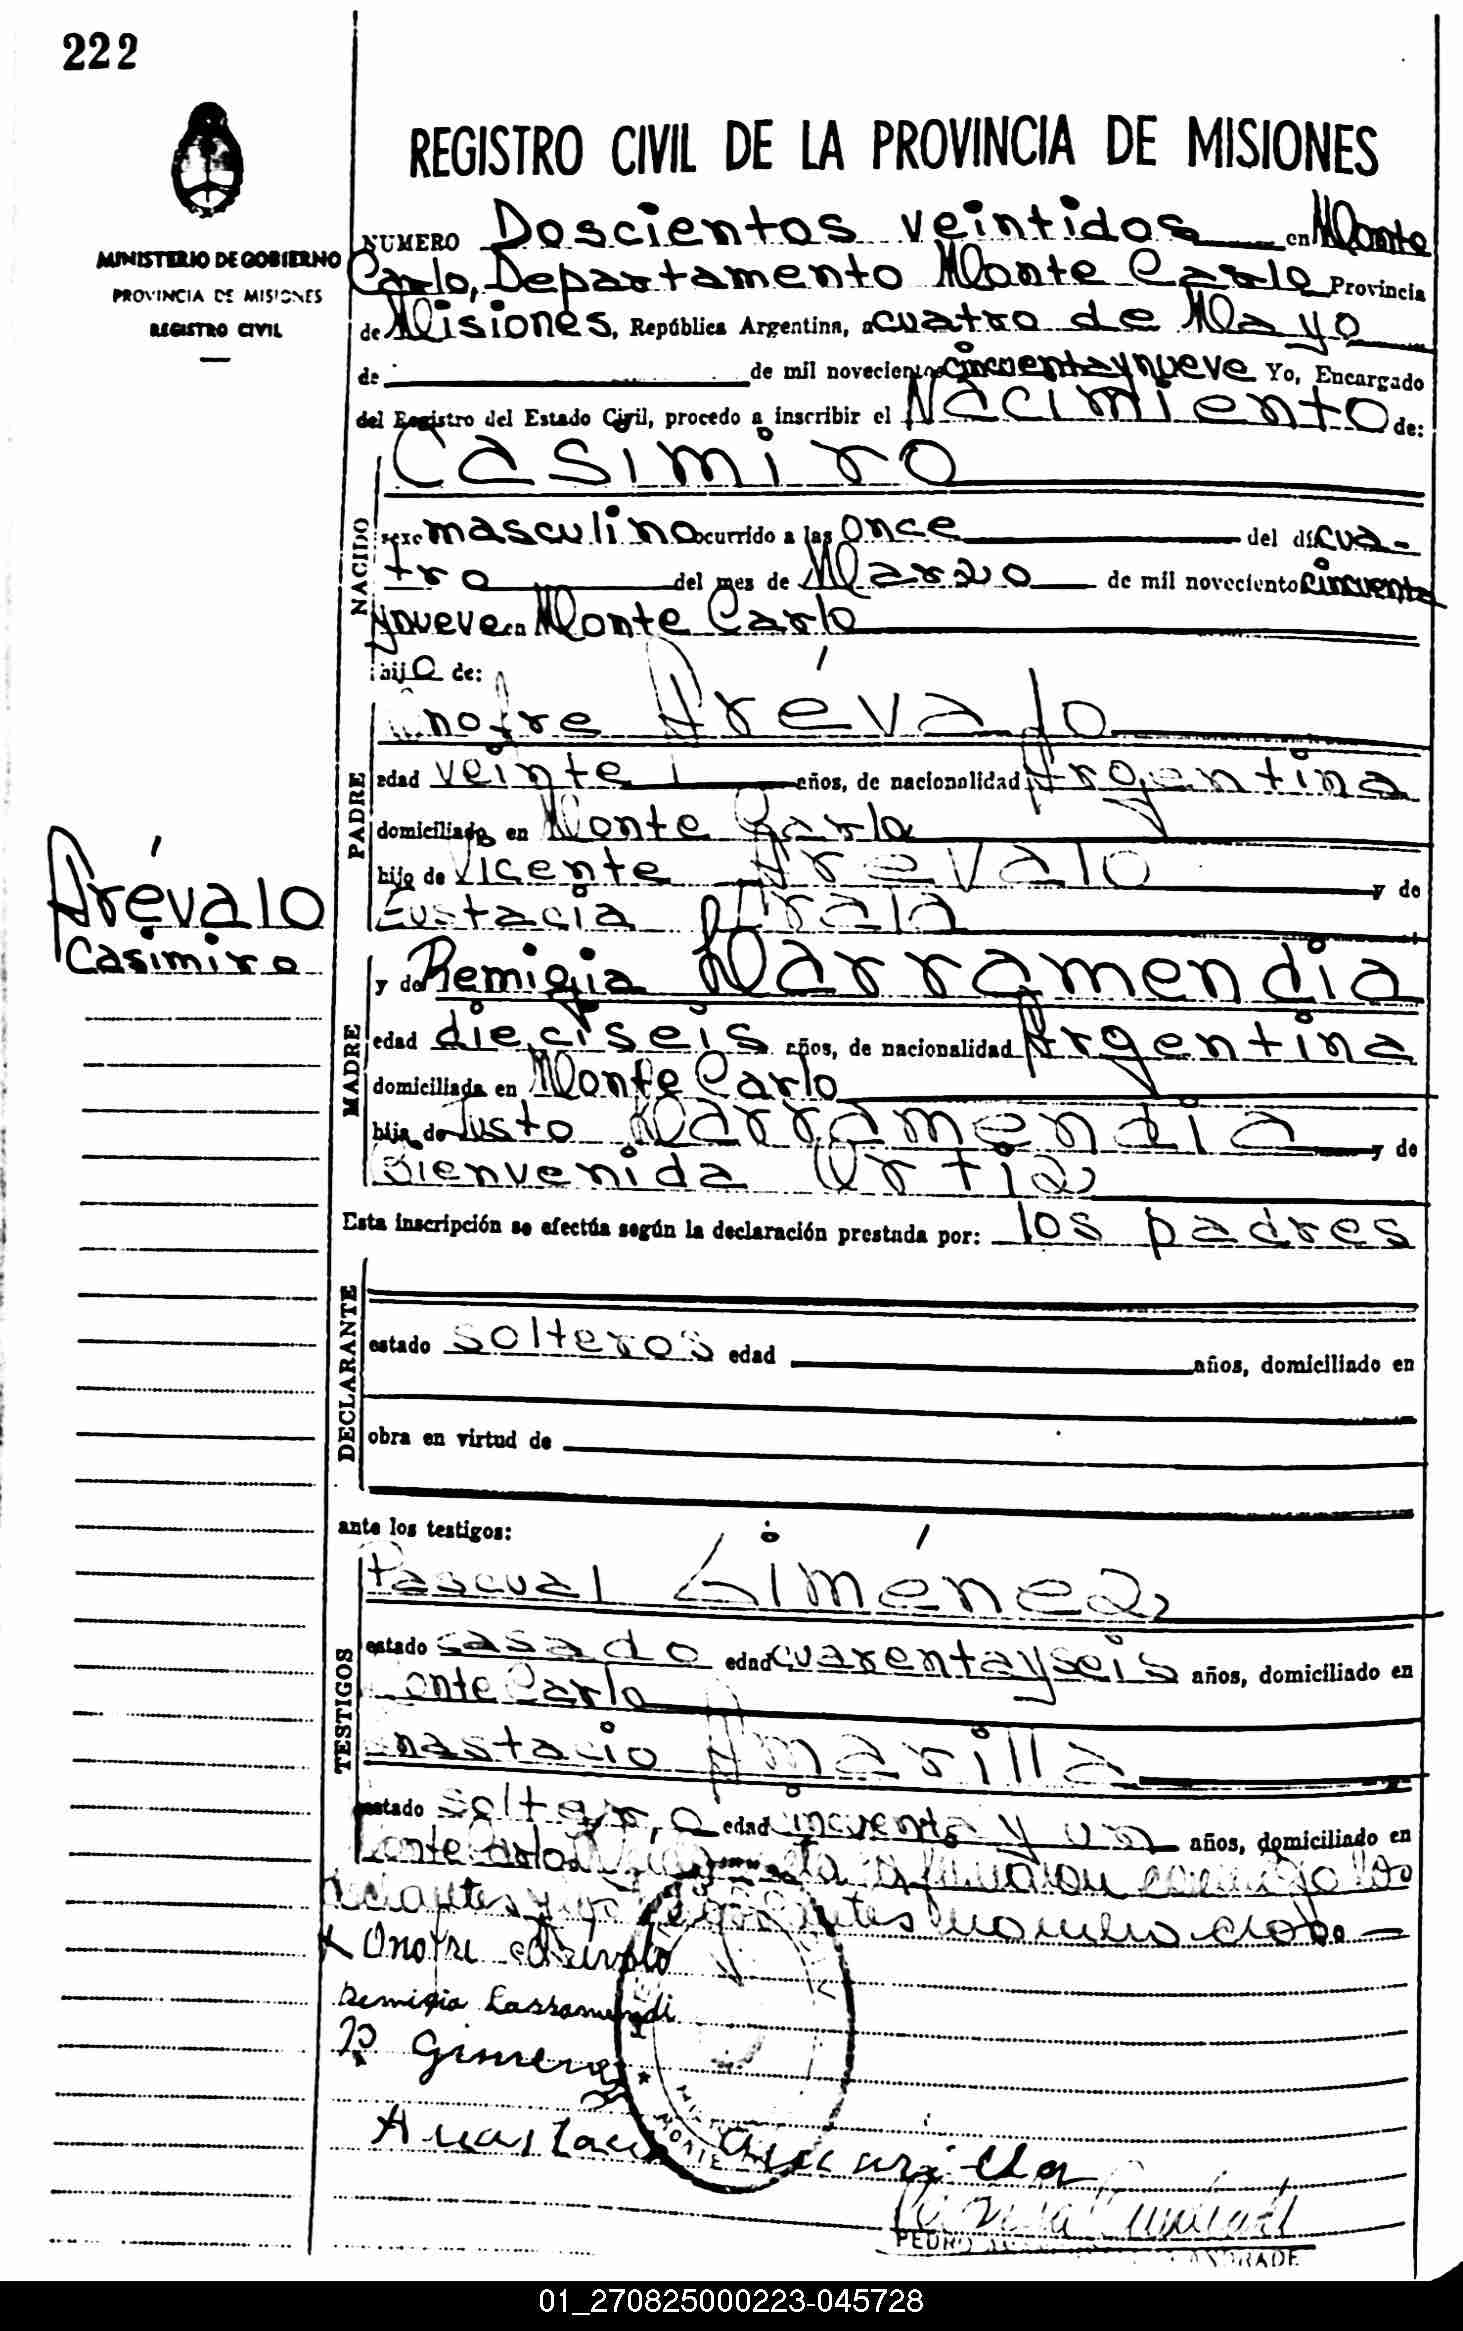 222
REGISTRO CIVIL DE LA PROVINCIA DE MISIONES
MINISTERIO DE GOBIERNO
PROVINCIA DE MISIONES
REGISTRO CIVIL
NUMERO Doscientos veintidos en Monte
Carlo, Departamento Monte Carlo Provincia
de Misiones, República Argentina, a cuatro de Mayo
de de mil novecientos cincuenta y nueve Yo, Encargado
del Registro del Estado Civil, procedo a inscribir el Nacimiento de:
NACIDO
Casimiro
sexo masculino ocurrido a las once del día cua-
tro del mes de Marzo de mil novecientos cincuenta
y nueve en Monte Carlo
hijo de:
PADRE
Onofre Arévalo
edad veinte años, de nacionalidad Argentina
domiciliado en Monte Carlo
hijo de Vicente Arevalo y de
Eustacia Irala
Arévalo
Casimiro
MADRE
y de Remigia Larramendia
edad dieciseis años, de nacionalidad Argentina
domiciliada en Monte Carlo
hija de Justo Larramendia y de
Bienvenida Ortiz
Esta inscripción se efectúa según la declaración prestada por: los padres
DECLARANTE
estado solteros edad años, domiciliado en
obra en virtud de
ante los testigos:
TESTIGOS
Pascual Giménez
estado casado edad cuarenta y seis años, domiciliado en
Monte Carlo
Anastacio Amarilla
estado soltero edad cincuenta y un años, domiciliado en
Monte Carlo la firmaron conmigo los
x Onofre Arevalo
Remigia Larramendi
P Gimenez
MONTE
Anastacio Amarilla
PEDRO ANDRADE
01_270825000223-045728